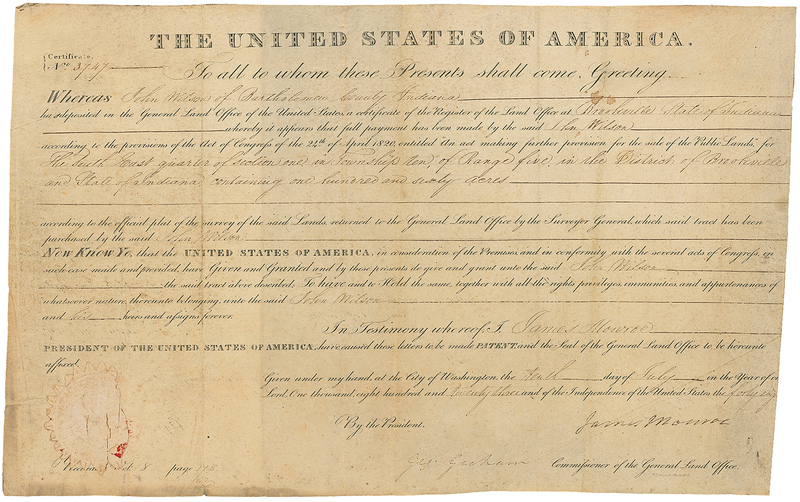 THE UNITED STATES OF AMERICA.
Certificate.
No. 3747
To all to whom these Presents shall come, Greeting
Whereas John Wilson of Bartholomew County Indiana
has deposited in the General Land Office of the United States, a certificate of the Register of the Land Office at Brookville State of Indiana
whereby it appears that full payment has been made by the said John Wilson
according to the provisions of the Act of Congress of the 24th of April 1820, entitled An act making further provision for the sale of the Public Lands, for
The South East quarter of section one in Township ten, of Range five, in the District of Brookville
and State of Indiana containing one hundred and sixty acres
according to the official plat of the survey of the said Lands, returned to the General Land Office by the Surveyor General, which said tract has been
purchased by the said John Wilson
Now Know Ye, that the UNITED STATES OF AMERICA, in consideration of the Premises, and in conformity with the several acts of Congress, in
such case made and provided, have Given and Granted and by these presents do give and grant unto the said John Wilson
the said tract above described, To have and to Hold the same, together with all the rights, privileges, immunities, and appurtenances of
whatsoever nature, thereunto belonging, unto the said John Wilson
and his heirs and assigns forever.
In Testimony whereof I, James Monroe
PRESIDENT OF THE UNITED STATES OF AMERICA, have caused these letters to be made PATENT, and the Seal of the General Land Office to be hereunto
affixed.
Given under my hand, at the City of Washington, the tenth day of July in the Year of
Lord, One thousand, eight hundred and twenty three and of the Independence of the United States, the forty
By the President. James Monroe
Vol. 8 page
Geo: Graham Commissioner of the General Land Office.